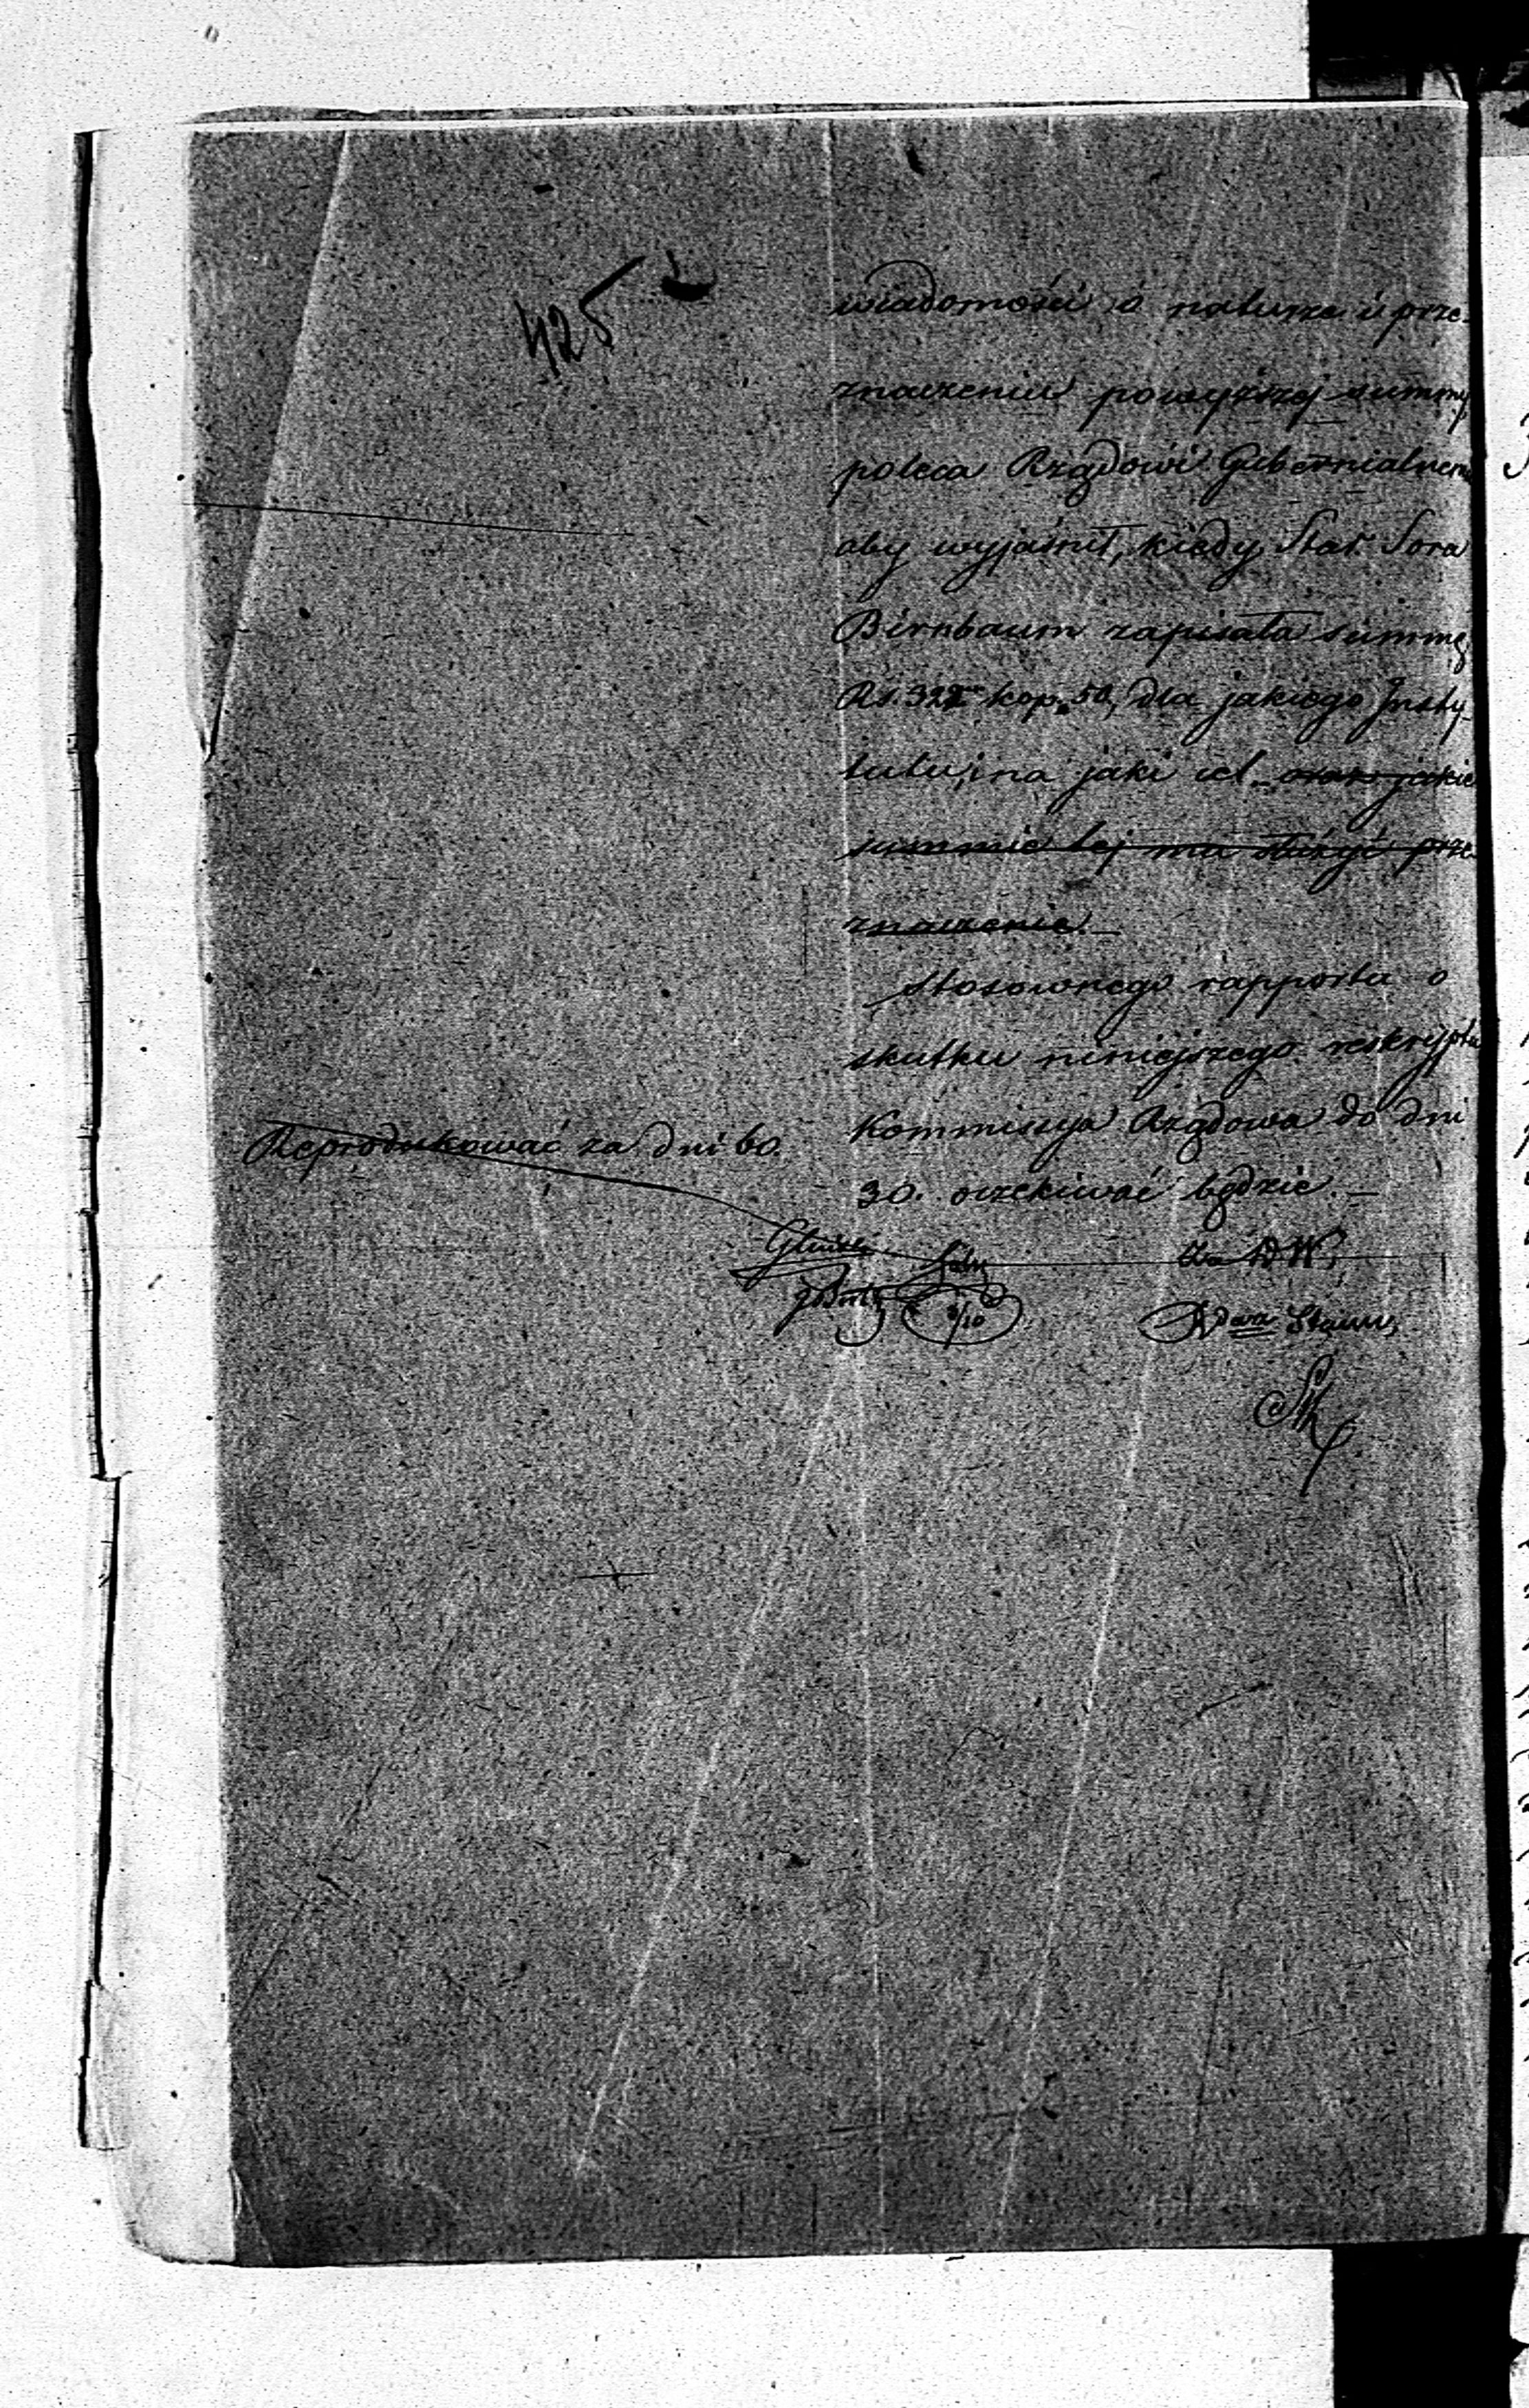 425
wiadomości o naturze i prze-
znaczeniu powyższej summy
poleca Rządowi Gubernialnemu
aby wyjaśnił, kiedy Star. Sora
Birnbaum zapisała summę
Rs. 322 kop. 50, dla jakiego Insty-
tutu, i na jaki cel oraz jakie
summie tej ma służyć prze
znaczenie. —
Stosownego rapportu o
skutku niniejszego reskryptu
Kommissya Rządowa do dni
30. oczekiwać będzie. —
Reprodukować za dni 60.
za D W,